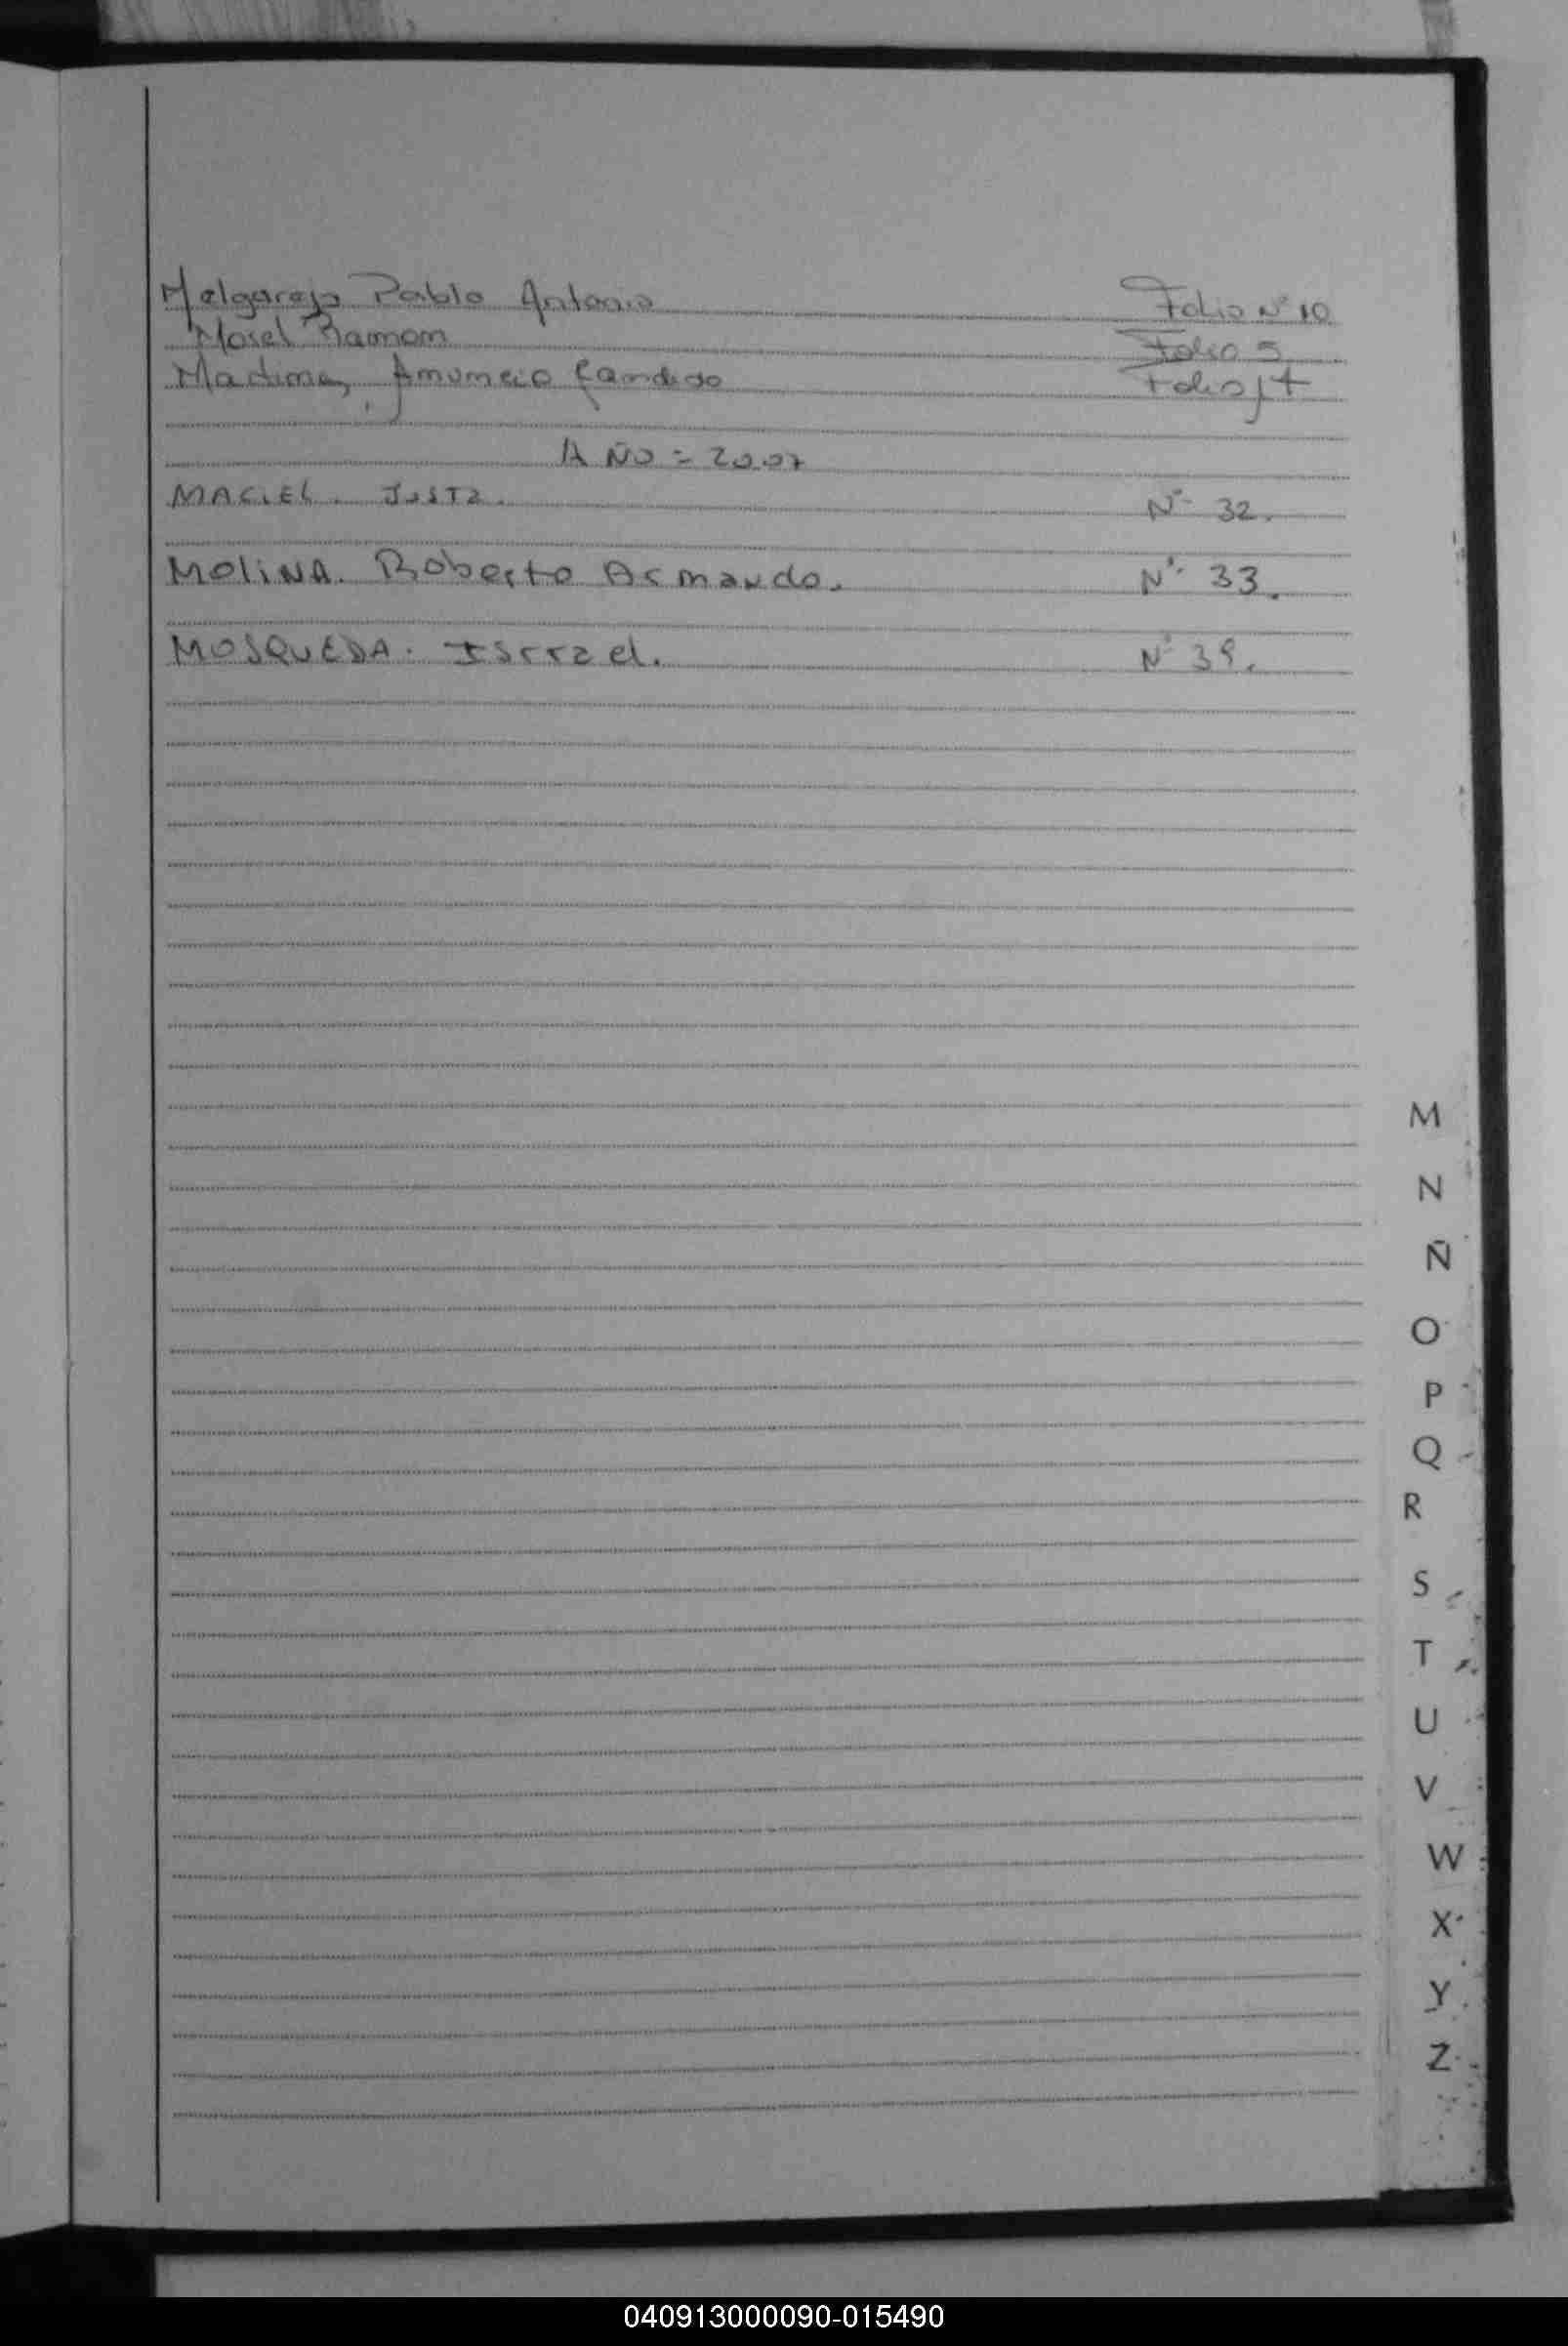 Melgarejo Pablo Antonio Folio Nº 10
Morel Ramon Folio 5
Martinez, Anuncio Candido Folio 17
AÑO = 2007
MACIEL. Justa. Nº 32.
MOLINA. Roberto Armando. Nº 33.
MOSQUEDA. Isrrael. Nº 39.
M
N
Ñ
O
P
Q
R
S
T
U
V
W
X
Y
Z
040913000090-015490